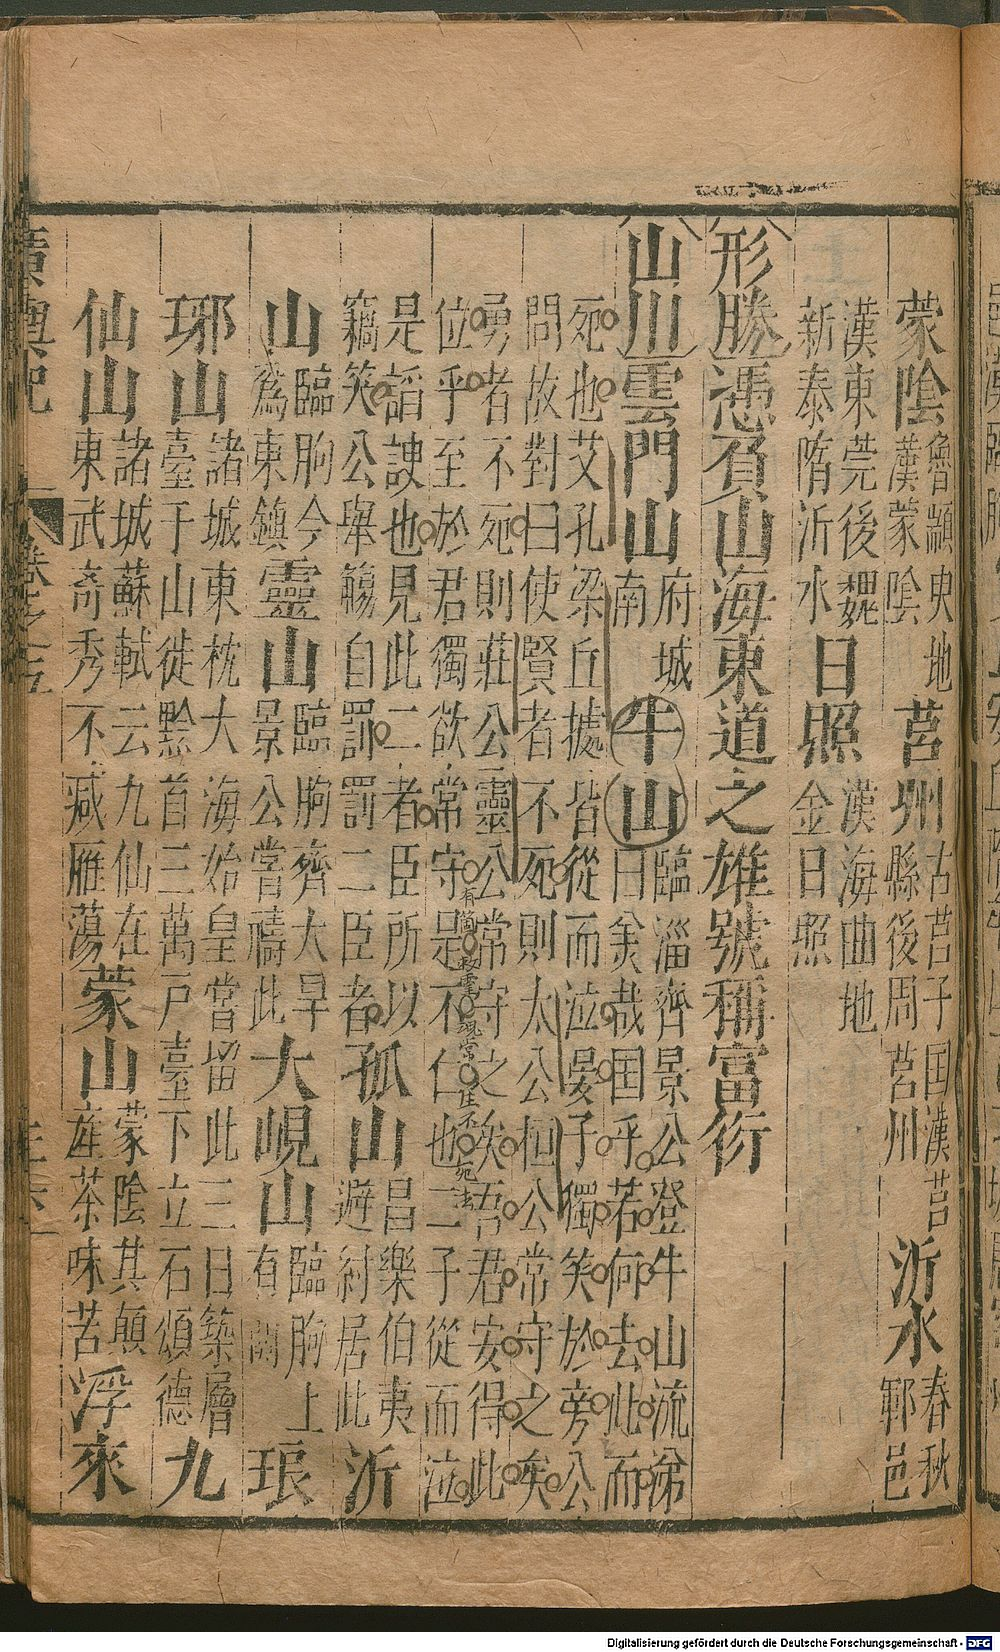 蒙陰魯顓臾地漢蒙陰莒州古莒子国漢莒縣後周莒州沂水春秋鄆邑
漢東莞後魏新泰隋沂水日照漢海曲地金日照
形勝憑負山海東道之雄號稱富衍
山川雲門山府城南牛山臨淄齊景公登牛山流涕曰美哉国乎若何去此而
死也艾孔梁丘據皆從而泣晏子獨笑於旁公
問故對曰使賢者不死則太公桓公常守之矣
勇者不死則莊公靈公常守之矣吾君安得此
位乎至於君獨欲常守是不仁也二子從而泣
是謟諛也見此二者臣所以竊笑公舉觴自罰罰二臣者孤山昌樂伯夷避紂居此沂
山臨朐今為東鎮靈山臨朐齊大旱景公嘗禱此大峴山臨朐上有關琅
琊山諸城東枕大海始皇嘗留此三日築層臺于山徙黔首三萬戶臺下立石頌德九
仙山諸城蘇軾云九仙在東武奇秀不減雁蕩蒙山蒙陰其顛産茶味苦浮來
廣輿記 卷之五
Digitalisierung gefördert durch die Deutsche Forschungsgemeinschaft - DFG